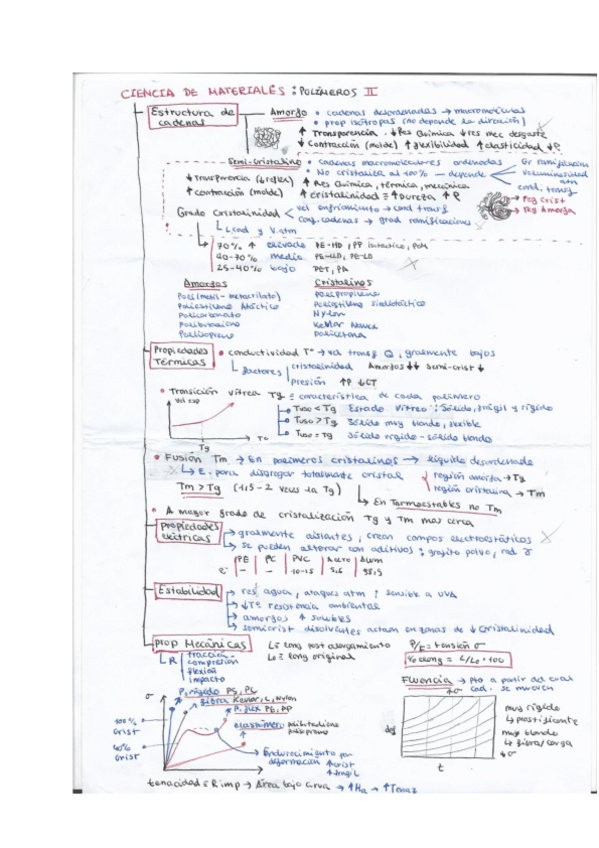 CIENCIA DE MATERIALES: POLÍMEROS II
Estructura de cadenas
Amorfo • cadenas desordenadas → macromoléculas
• prop isótropas (no depende la dirección)
↑ Transparencia · ↓ Res Química ↓ res mec desgaste
↓ Contracción (molde) ↑ flexibilidad ↑ elasticidad ↓ρ
Semi-cristalino • cadenas macromoleculares ordenadas
• No cristaliza al 100% — depende
Gr ramificación
Voluminosidad
cond. transf
↓ transparencia
↑ contracción (molde)
↑ Res Química, térmica, mecánica
↑ cristalinidad = ↑ Dureza ↑ρ
→ Reg Crist
→ Reg Amorfa
Grado Cristalinidad
vel enfriamiento → cond transf
Conf. cadenas → grad ramificaciones
70% ↑ elevado PE-HD, PP isotáctico, POM
40-70% medio PE-LLD, PE-LD
25-40% bajo PET, PA
Amorfos
Poli(metil-metacrilato)
Poliestileno Atáctico
Policarbonato
Polibutadieno
Poliisopreno
Cristalinos
Polipropileno
Poliestileno sindiotáctico
Nylon
Kevlar Nomex
Policetona
Propiedades Térmicas
• conductividad Tª → vel transf Q, gralmente bajos
factores
cristalinidad Amorfos ↓↓ semi-crist ↓
presión ↑P ↓CT
• Transición vítrea Tg = característica de cada polímero
Vol esp
Tuso < Tg Estado vítreo: Sólido, frágil y rígido
Tuso > Tg Sólido muy blando, flexible
Tuso = Tg Sólido rígido - sólido blando
Tg
Tª
• Fusión Tm → En polímeros cristalinos → líquido desordenado
↳ E. para disgregar totalmente cristal
región amorfa → Tg
región cristalina → Tm
Tm > Tg (1,5-2 veces la Tg)
↳ En Termoestables no Tm
• A mayor grado de cristalización Tg y Tm mas cerca
Propiedades eléctricas
→ gralmente aislantes, crean campos electroestáticos
→ se pueden alterar con aditivos: grafito polvo, red
PE | PC | PVC | Acero | Alum
10-15 | 5,6
Estabilidad
→ res agua, ataques atm ! sensible a UVA
→ ↓Tª resistencia ambientales
→ amorfos ↑ solubles
→ semicrist disolventes actúan en zonas de ↓ Cristalinidad
Prop Mecánicas
↳ R
tracción
compresión
flexión
impacto
L = long post alargamiento
Lo = long original
P/F = tensión σ
% elong = L/Lo · 100
Fluencia → Pto a partir del cual cad. se mueven
σ
P. rígido PS, PC
fibra Kevlar, L, Nylon
P. flex PE, PP
elastómero polibutadieno
poliisopreno
100% crist
40% crist
Endurecimiento por deformación ↑ crist
↑ frágil
↑σ
def
t
↓σ
muy rígido
↳ plastificante
muy blando
↳ fibra/carga
tenacidad = R imp → Área bajo curva → ↑Ha → ↑Tenaz